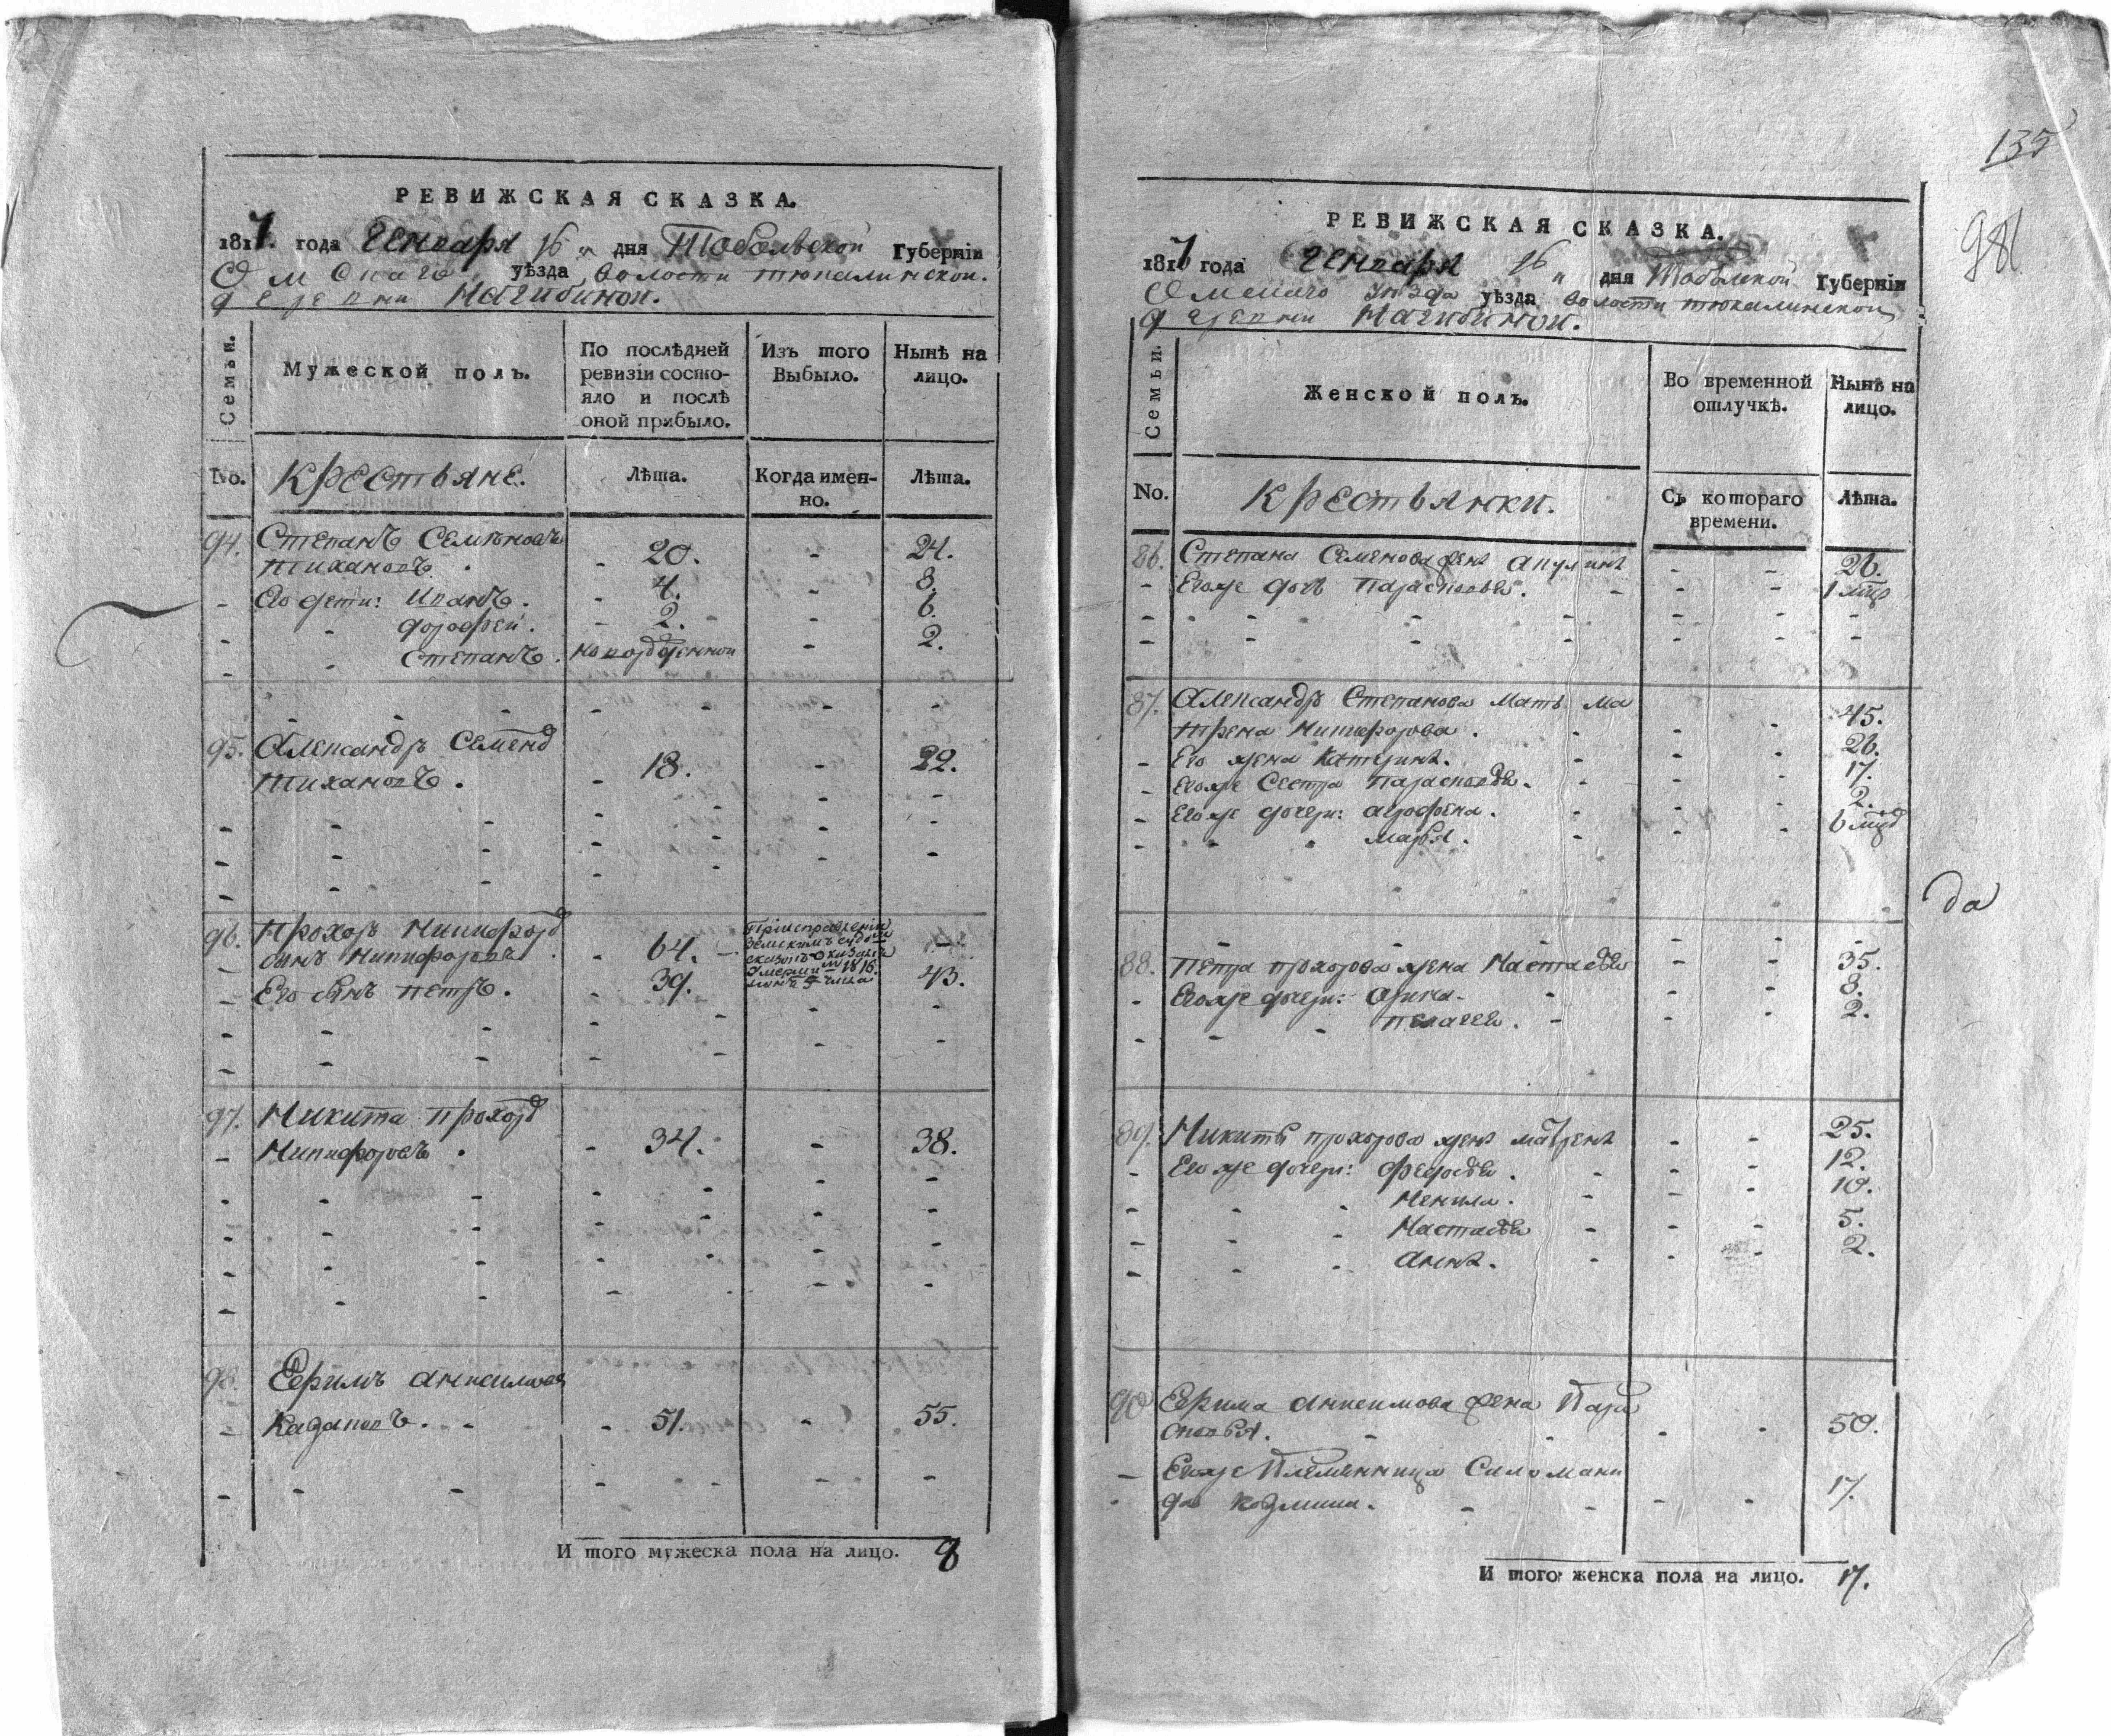 РЕВИЖСКАЯ СКАЗКА.
1817. года Генваря 16 дня Тобольской Губернїи
Омскаго уѣзда волости тюкалинской.
деревни Нагибиной.
Семьи.
Мужеской полъ.
По послѣдней ревизїи состо-
яло и послѣ оной прибыло.
Изъ того Выбыло.
Нынѣ на лицо.
No. Крестьяне. Лѣта. Когда имен-
но. Лѣта.
94. Степанъ Семѣновъ
Тихановъ. 20. - 24.
Его дети: Иванъ. 4. - 8.
дорофей. 2. - 6.
Степанъ. новорожденной - 2.
95. Александръ Семенд
Тихановъ. 18. - 22.
96. Прохоръ Никифоро
сынъ Никифоровъ 64. -
Умерли 1816.
Его сынъ петръ. 39. 43.
97. Никита прохор
Никифоровъ. 34. - 38.
98. Ефимъ анксимовъ
Казаковъ. 51. - 55.
И того мужеска пола на лицо. 8
135
981
РЕВИЖСКАЯ СКАЗКА.
1817 года Генваря 16 дня Тобольской Губернїи
Омскаго уѣзда уѣзда волости тюкалинской
деревни Нагибиной.
Семьи.
Женской полъ.
Во временной отлучкѣ.
Нынѣ на лицо.
No. Крестьянки. Съ котораго
времени. Лѣта.
86. Степана Семенова жена акулина 26.
Егоже дочь парасковья. 1
87. Александра Степанова мать ма
трена Никифорова. 45.
Его жена катерина. 26.
Егоже Сестра парасковья. 17.
Егоже дочери: агрофена. 2.
марья. 6
да
88. Петра прохорова жена Настасья 35.
Егоже дочери: орина 8.
пелагея. 2.
89. Никиты прохорова жена матрена 25.
Егоже дочери: федосья. 12.
Ненила. 10.
Настасья 5.
анна. 2.
90 Ефима анксимова жена Пара
сковья. 50.
Егоже Племянница Соломани
да козмина. 17.
И того женска пола на лицо. 17.